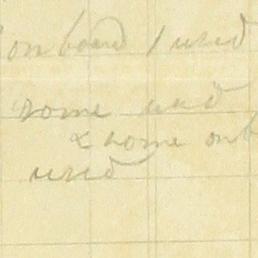 on board I used
some used
& some onb
used